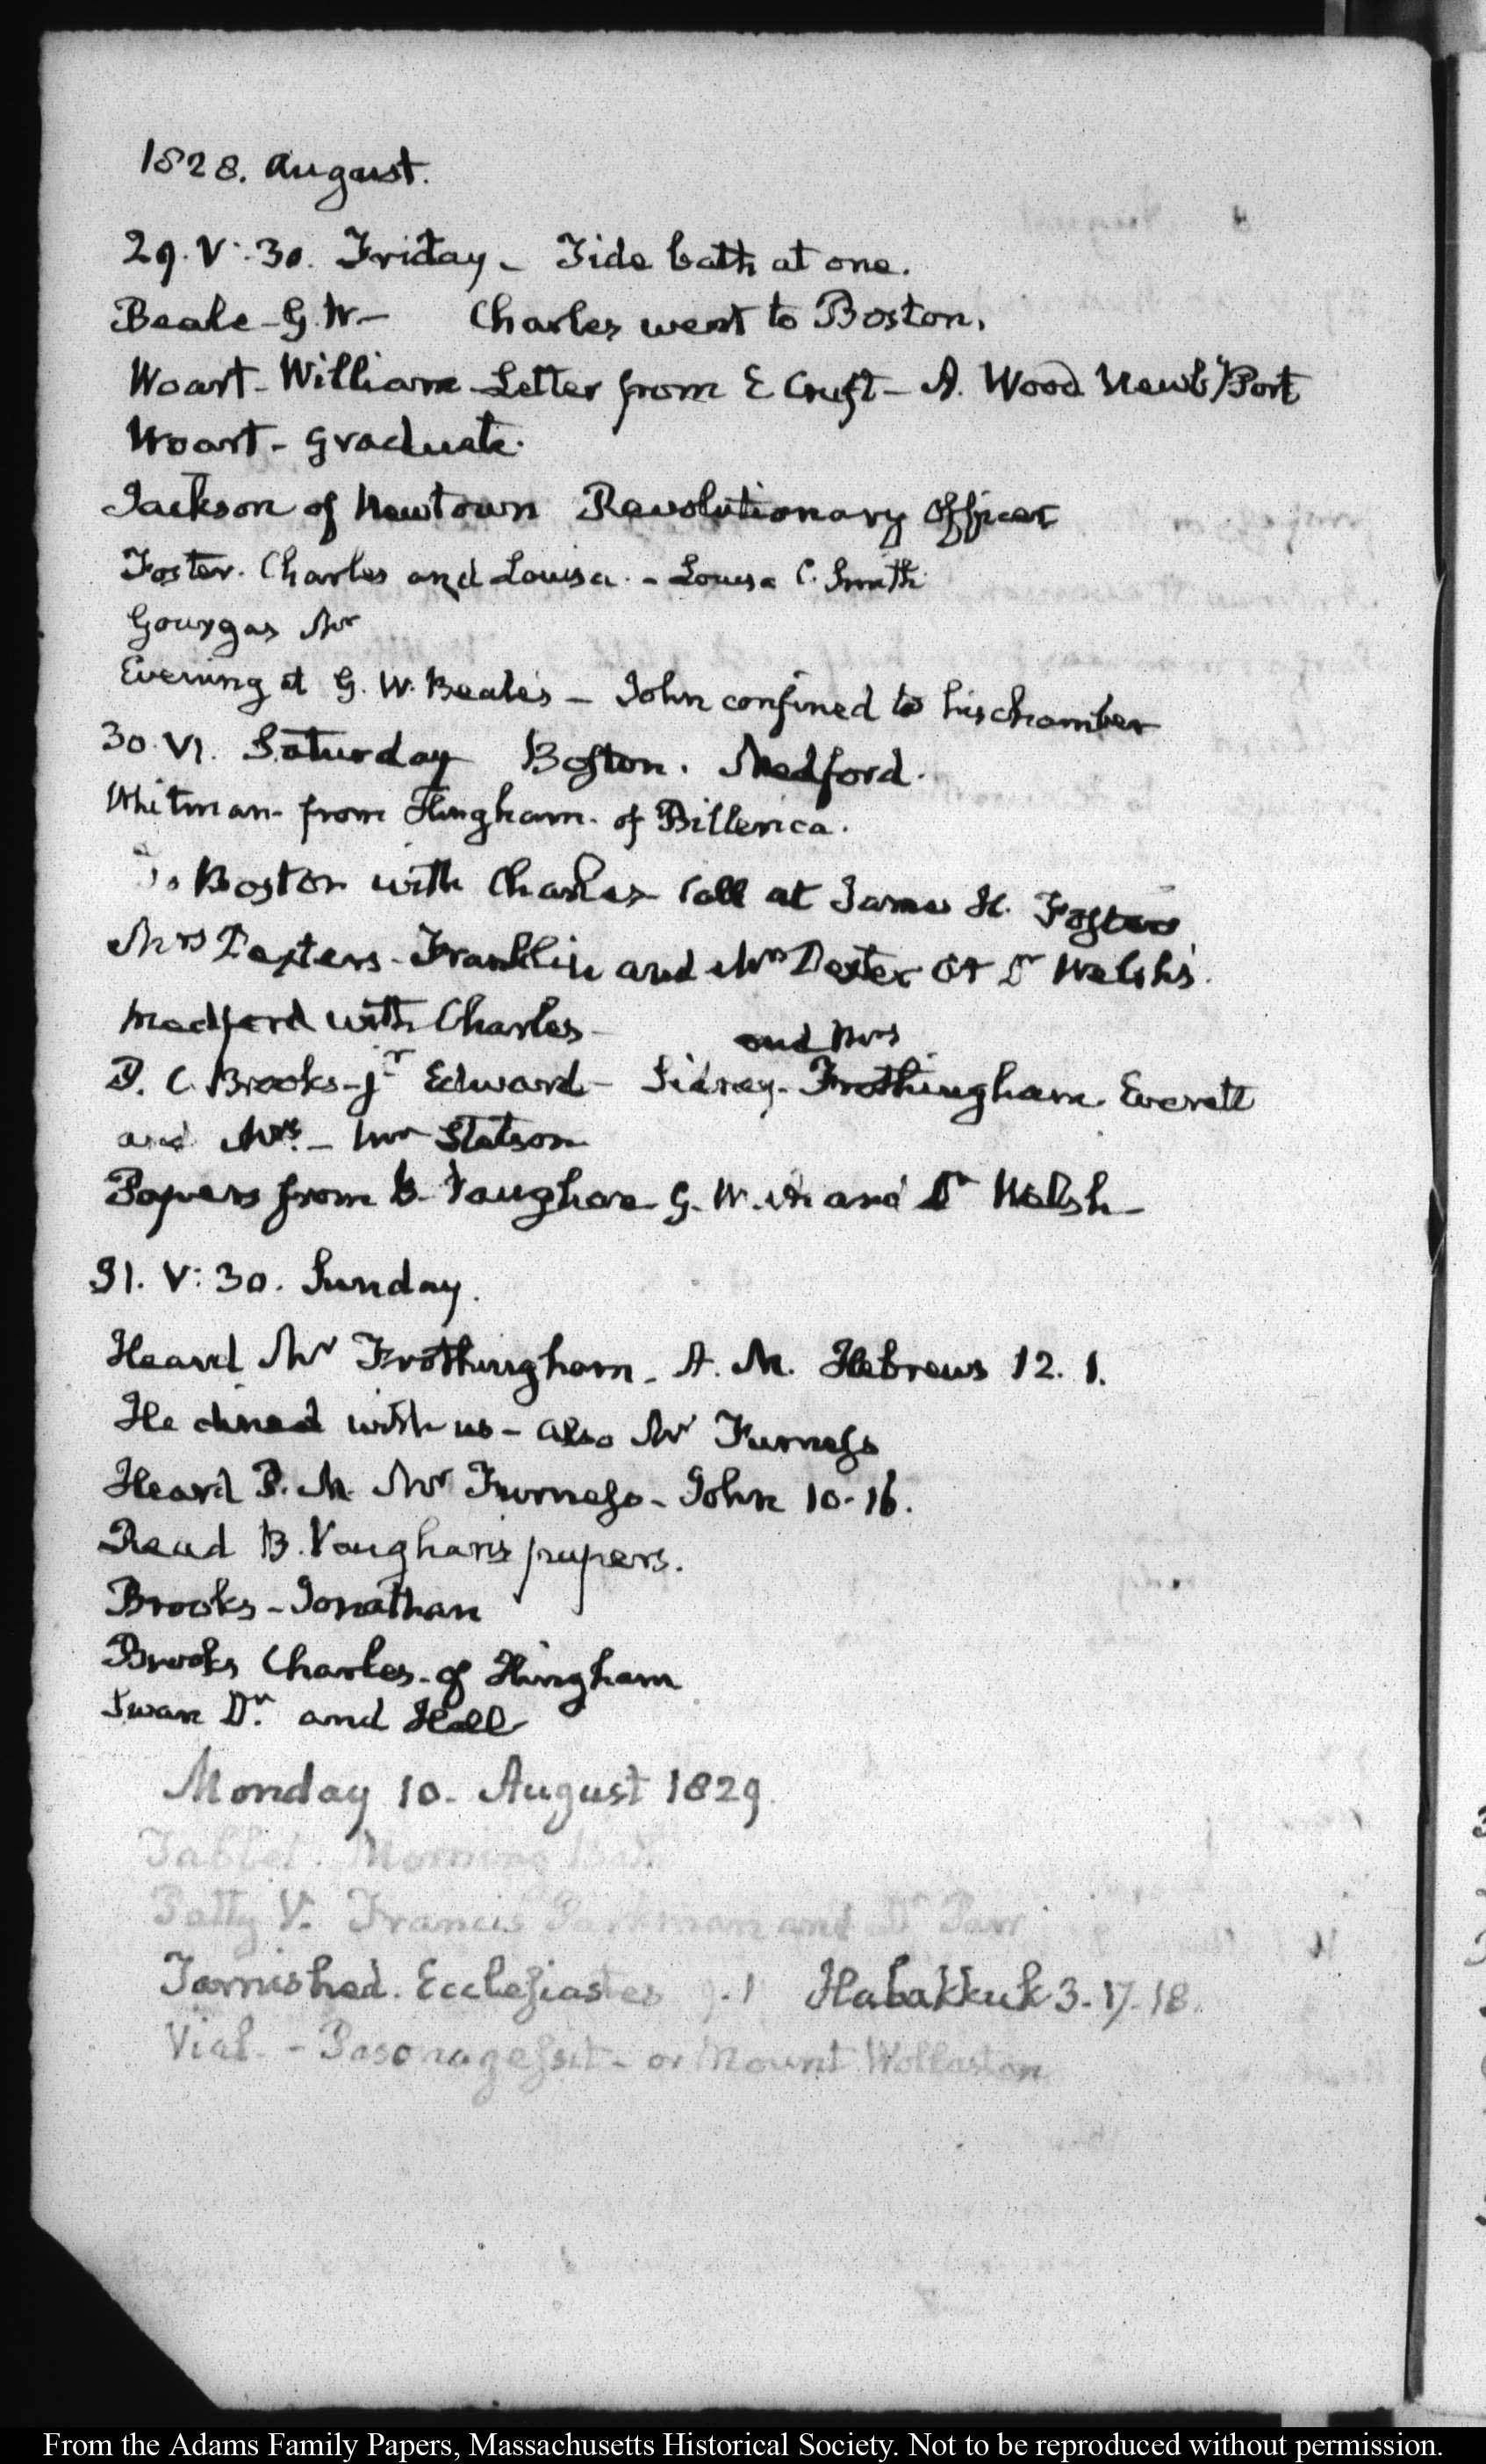 1828. August.
29. V:30. Friday - Tide bath at one.
Beale - G. W. - Charles went to Boston.
Woart - William - Letter from E Cruft - A. Wood Newb'y Port
Woart - Graduate.
Jackson of Newtown Revolutionary Officer
Foster. Charles and Louisa. - Louisa C. Smith
Gourgas Mr
Evening at G. W. Beale's - John confined to his chamber
30. VI. Saturday Boston. Medford.
Whitman - from Hingham - of Billerica.
To Boston with Charles - Call at James H. Fosters
Mrs Dexters - Franklin and Mrs Dexter at Dr Welsh's.
Medford with Charles -
and Mrs
P. C. Brooks - jr Edward - Sidney - Frothingham - Everett
and Mrs. - Mr Stetson
Papers from B. Vaughan G. W. A. and Dr Welsh -
31. V:30. Sunday.
Heard Mr Frothingham - A. M. Hebrews 12. 1.
He dined with us - also Mr Furness
Heard P. M. Mr Furness - John 10-16.
Read B. Vaughan's papers.
Brooks - Jonathan
Brooks Charles - of Hingham
Swan Dr. and Hall
Monday 10. August 1829.
Tablet. Morning Bath
Patty V. Francis Parkman and Dr Parr
Tarnished. Ecclesiastes 9.1 Habakkuk 3-17-18.
Vial - or Mount Wollaston
From the Adams Family Papers, Massachusetts Historical Society. Not to be reproduced without permission.